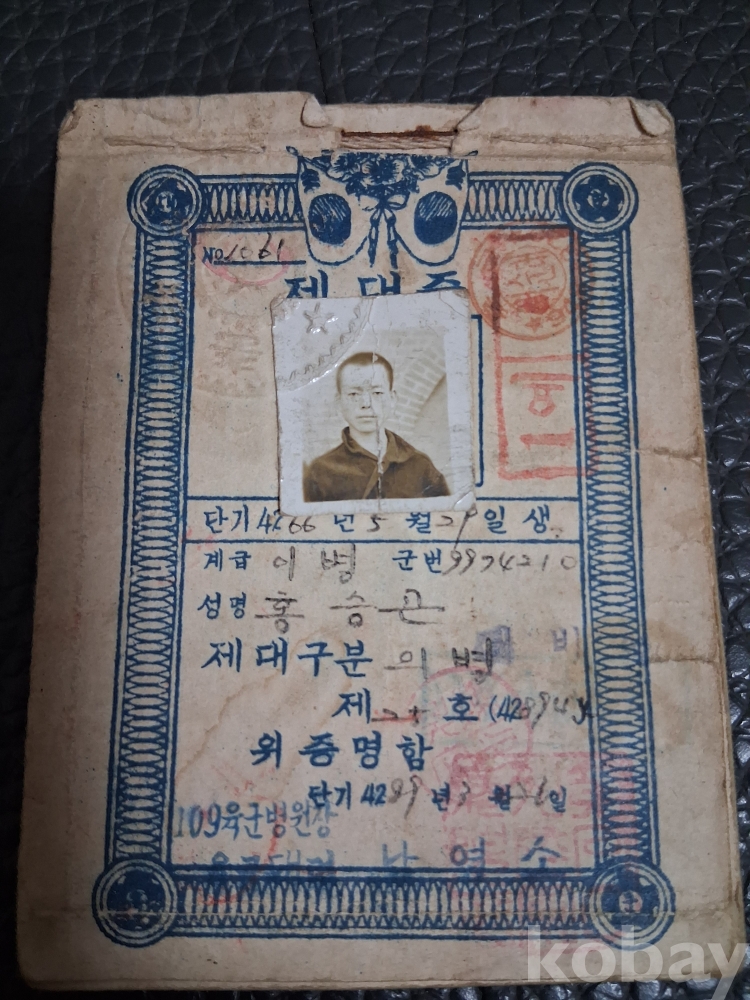 No 1061
제대증
단기 4266 년 5 월 29 일 생
계급 이병 군번 9974210
성명 홍승관
제대구분 의병
제 호 (4289
위 증명함
단기 4289 년 3 월 일
109육군병원장
kobay